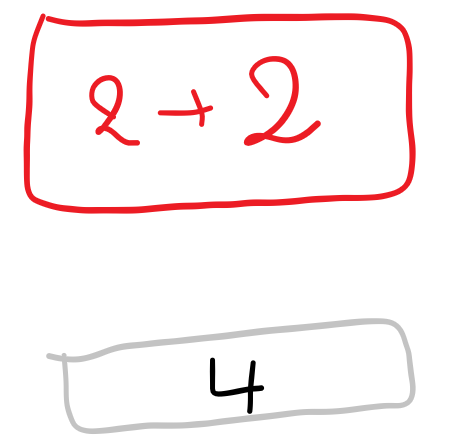 2 + 2
4